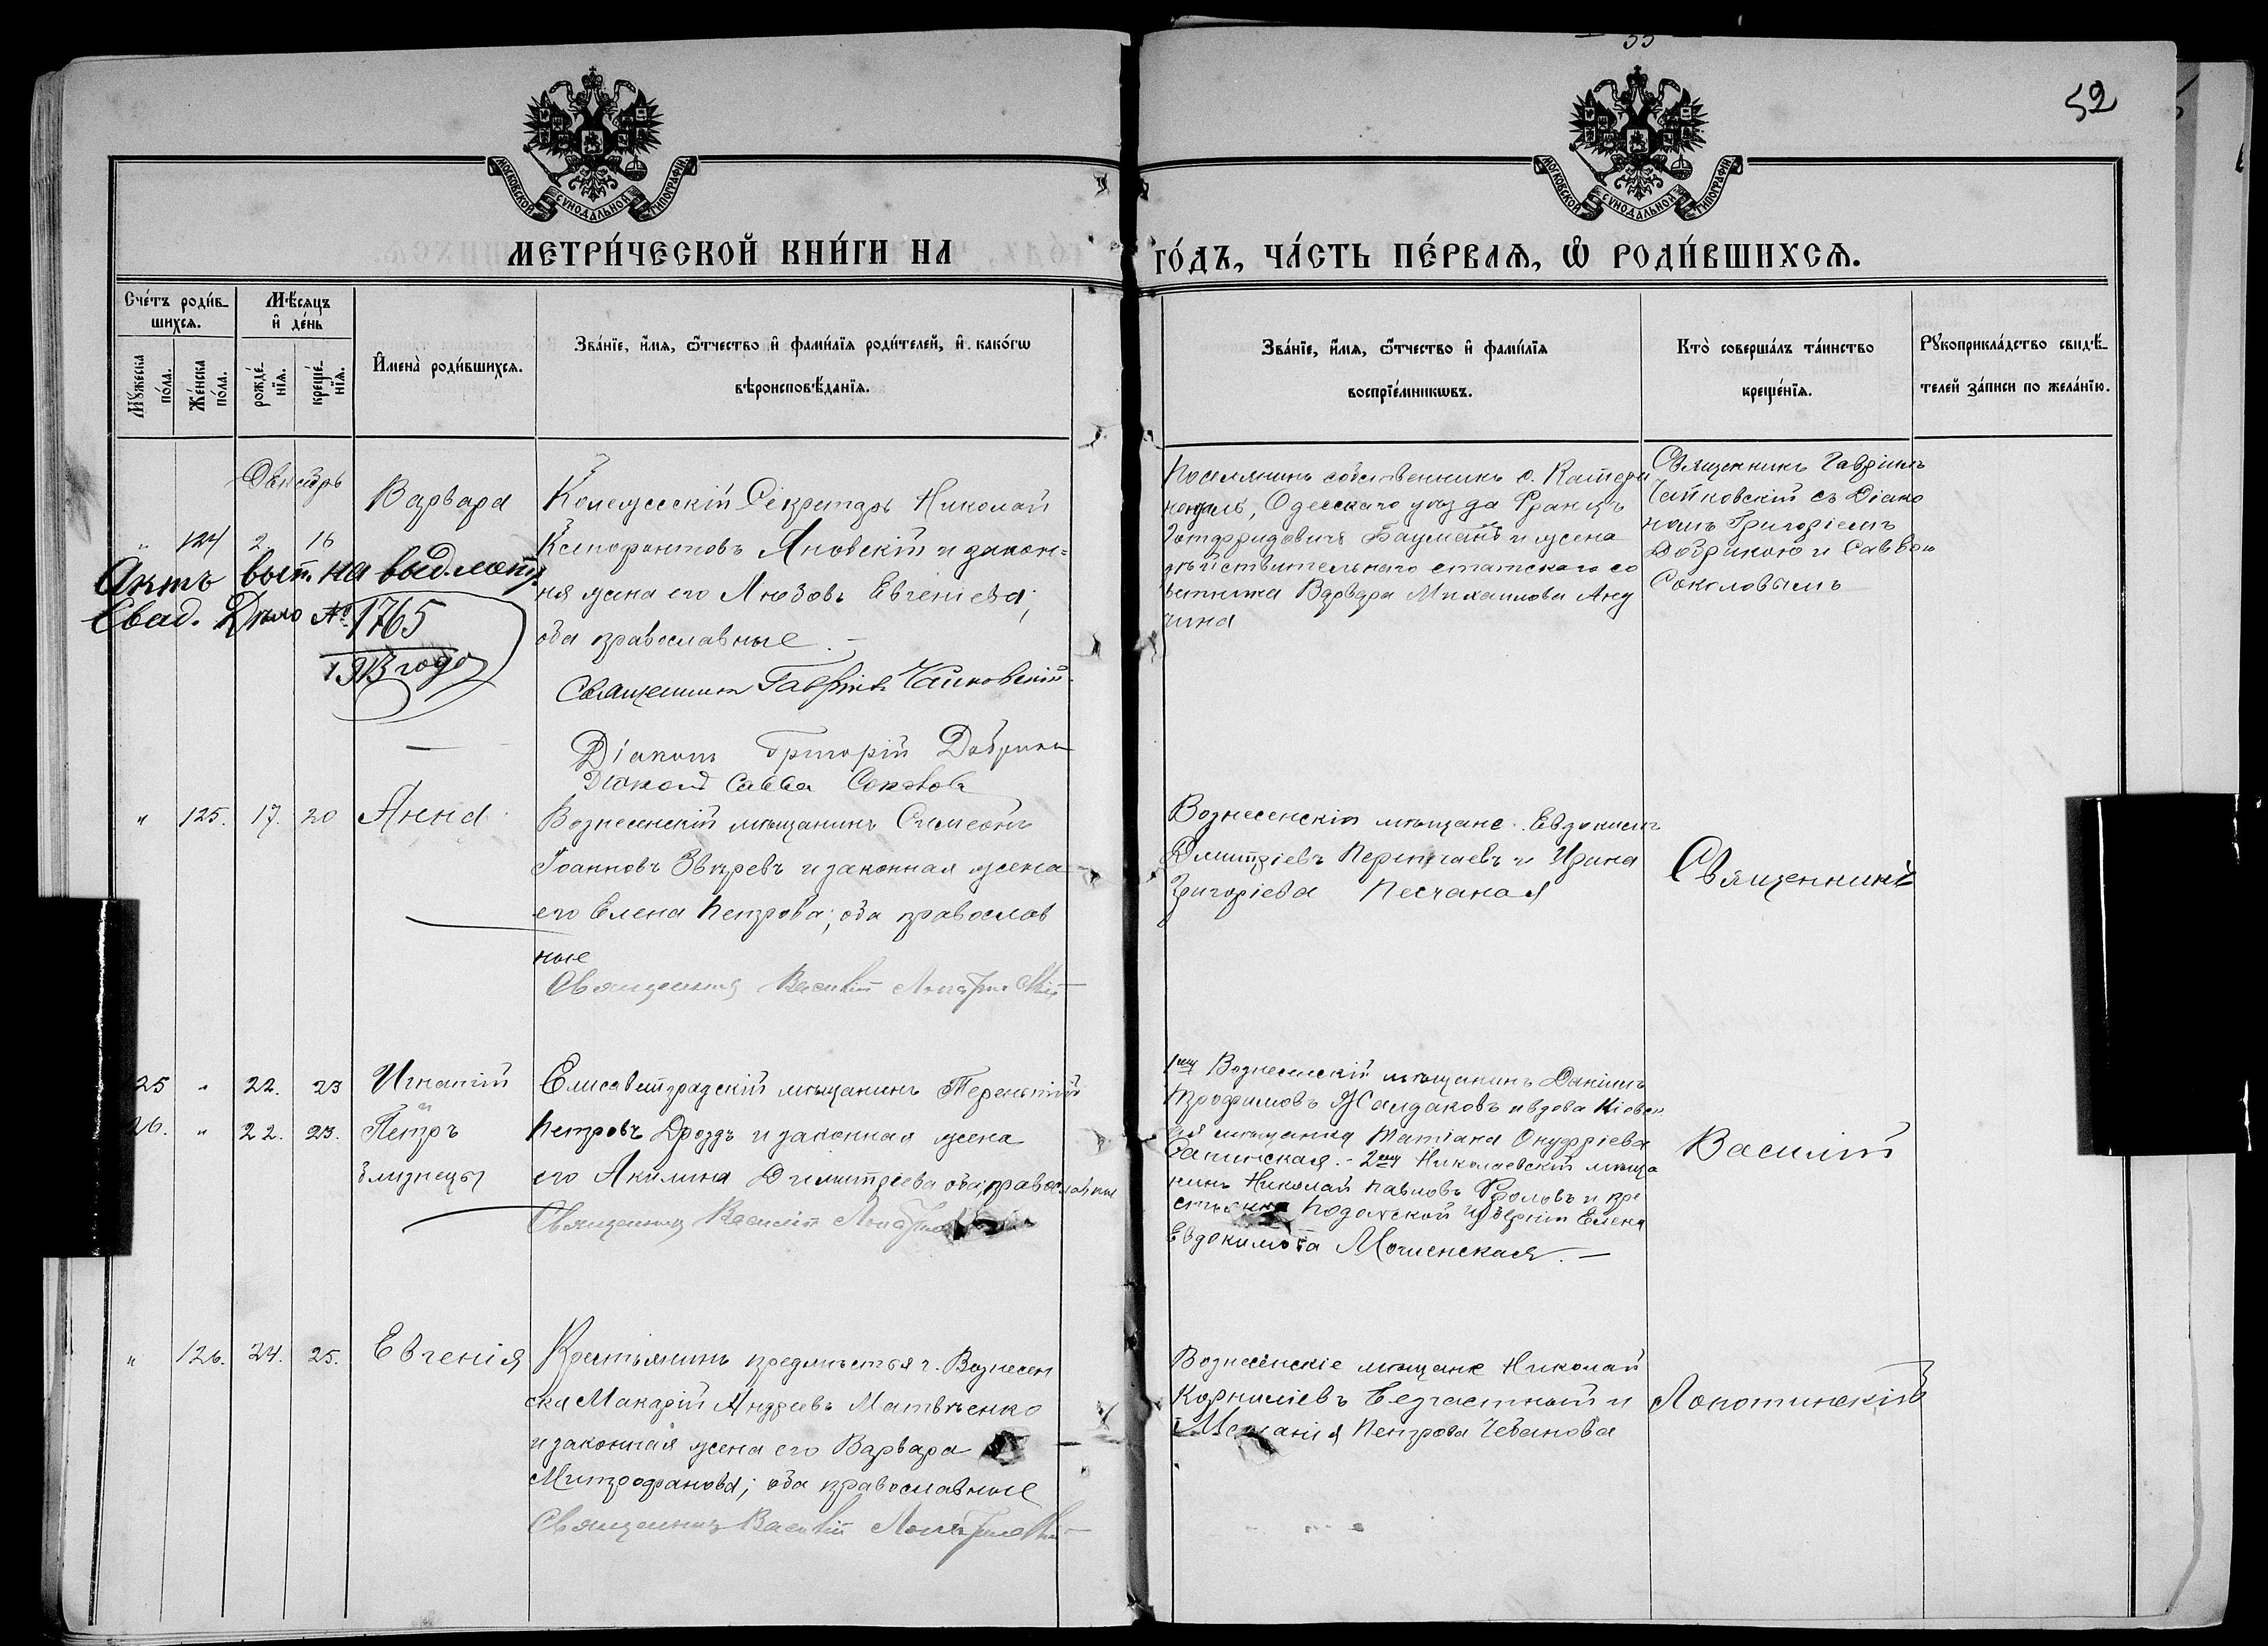 55
52
МОСКОВСКОЙ СѴНОДАЛЬНОЙ ТИПОГРАФІИ
МОСКОВСКОЙ СѴНОДАЛЬНОЙ ТИПОГРАФІИ
МЕТРИ́ЧЕСКОЙ КНИ́ГИ НА
ГО́ДЪ, ЧА́СТЬ ПЕ́РВАЯ, Ѡ҆ РОДИ́ВШИХСЯ.
Сче́тъ роди́в-
шихся.
Мꙋ́жеска по́ла.
Же́нска по́ла.
Мѣ́сяцъ
и҆ де́нь
рожде́нїя.
креще́нїя.
И҆мена̀ роди́вшихся.
Зва́нїе, и҆́мя, ѻ҆́тчество и҆ фами́лїя роди́телей, и҆ како́гѡ
вѣроисповѣ́данїя.
Зва́нїе, и҆́мя, ѻ҆́тчество и҆ фами́лїя
воспрїе́мникѡвъ.
Кто̀ соверша́лъ та́инство
креще́нїя.
Рꙋкоприкла́дство свидѣ́-
телей за́писи по жела́нїю.
Октябрь
" 124 2 16
Варвара
Колежсскій Секретарь Николай
Ксенофонтовъ Яновскій и закон=
ная жена его Любовь Евгеніева;
оба православные.
Священникъ Гавріилъ Чайковскій.
Діаконъ Григорій Добрина
Діаконъ Савва Соколовъ
Актъ выт. на выд. метр.
Свад. Дѣло № 1765
1913 года
Поселянинъ собственникъ с. Катери
, Одесскаго уѣзда Францъ
Готфридовичъ Бауманъ и жена
дѣйствительнаго статскаго со
вѣтника Варвара Михаилова
Священникъ Гавріилъ
Чайковскій съ Діако
номъ Григоріемъ
Добриною и Саввою
Соколовымъ
" 125. 17. 20 Анна
Вознесенскій мѣщанинъ Симеонъ
Іоанновъ Звѣревъ и законная жена
его Елена Петрова; оба православ
ные
Священникъ Василій Лопатинскій
Вознесенскіе мѣщане Евдокимъ
Дмитріевъ и Ирина
Григоріева Песчаная
Священникъ
25 " 22. 23 Игнатій
26. " 22. 23. Петръ
близнецы
Елисаветградскій мѣщанинъ Терентій
Петровъ Дроздъ и законная жена
его Акилина Димитріева оба православные
Священникъ Василій
1му Вознесенскій мѣщанинъ Даніилъ
Трофимовъ Жалдаковъ и вдова Кіевск
ая мѣщанка Татіана Онуфріева
. - 2му Николаевскій мѣща
нинъ Николай Павловъ Фроловъ и кре
стьянка Подольской губерніи Елена
Евдокимова . —
Василій
" 126. 24. 25. Евгенія
Крестьянинъ предмѣстья г. Вознесен
ска Макарій Андреевъ Матвѣенко
и законная жена его Варвара
Митрофанова; оба православные
Священникъ Василій Лопатинскій
Вознесенскіе мѣщане Николай
Корниліевъ Безчастный и
Меланія Петрова Чебанова
Лопатинскій